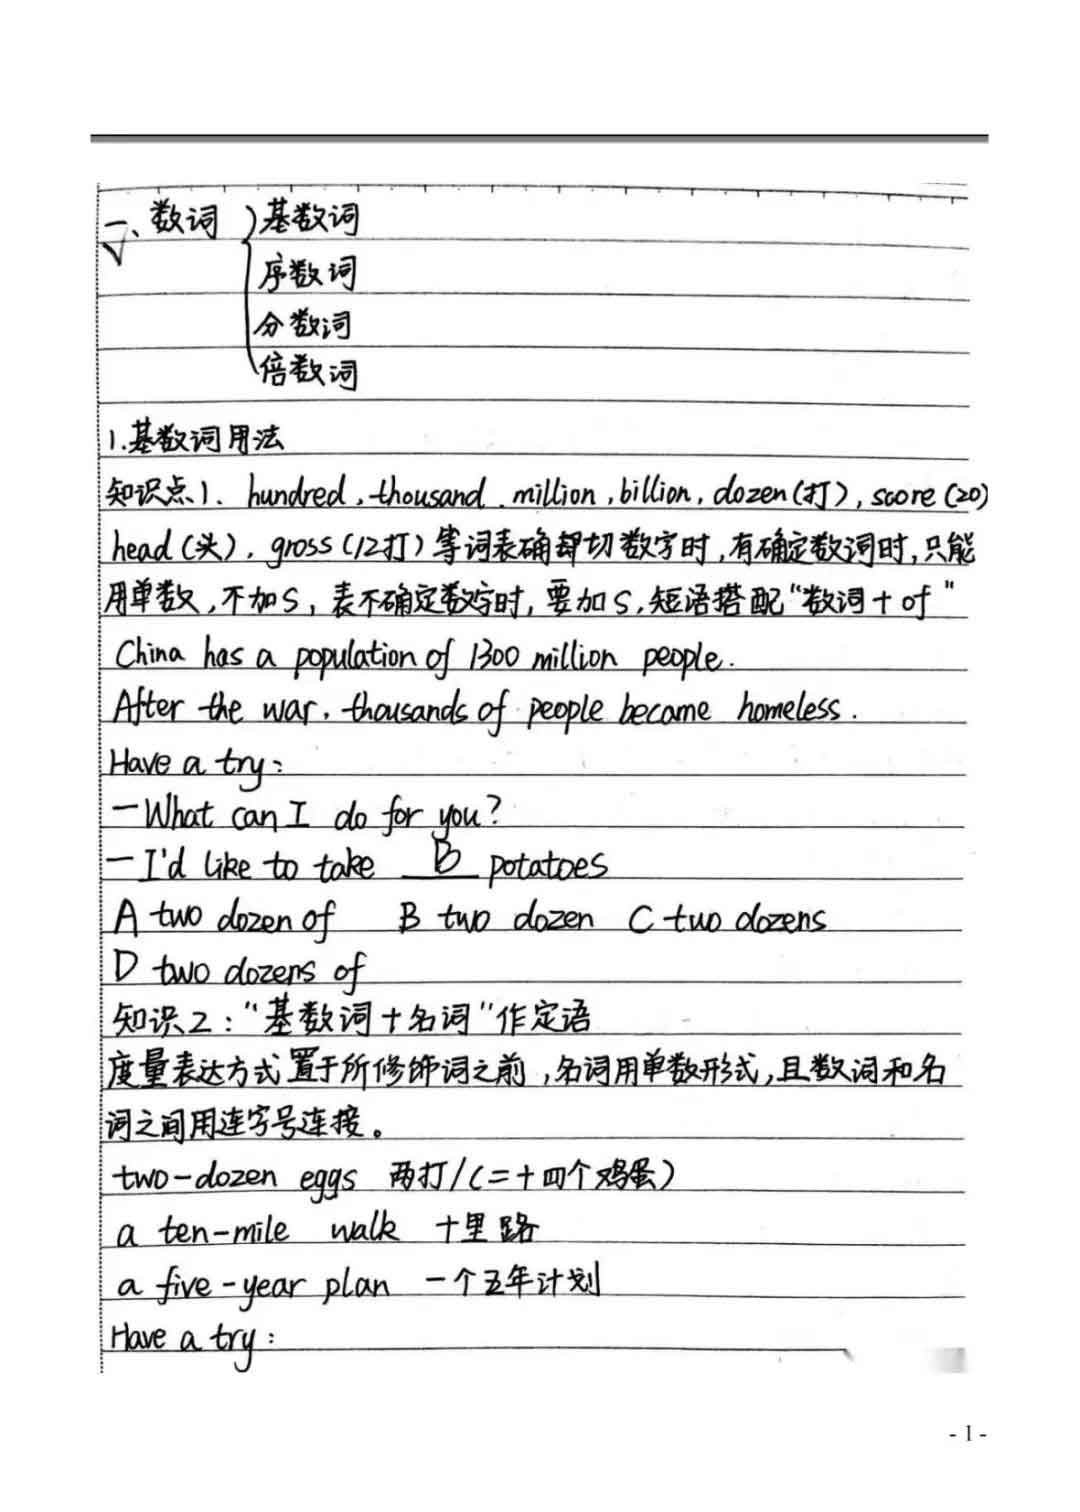 一、数词 基数词
序数词
分数词
倍数词
1.基数词用法
知识点1、hundred, thousand, million, billion, dozen(打), score(20)
head(头), gross(12打)等词表确却切数字时,有确定数词时,只能
用单数,不加s,表不确定数字时,要加s,短语搭配"数词+of"
China has a population of 1300 million people.
After the war, thousands of people became homeless.
Have a try:
—What can I do for you?
—I'd like to take B potatoes
A two dozen of B two dozen C two dozens
D two dozens of
知识2:"基数词+名词"作定语
度量表达方式置于所修饰词之前,名词用单数形式,且数词和名
词之间用连字号连接。
two-dozen eggs 两打/(二十四个鸡蛋)
a ten-mile walk 十里路
a five-year plan 一个五年计划
Have a try:
- 1 -